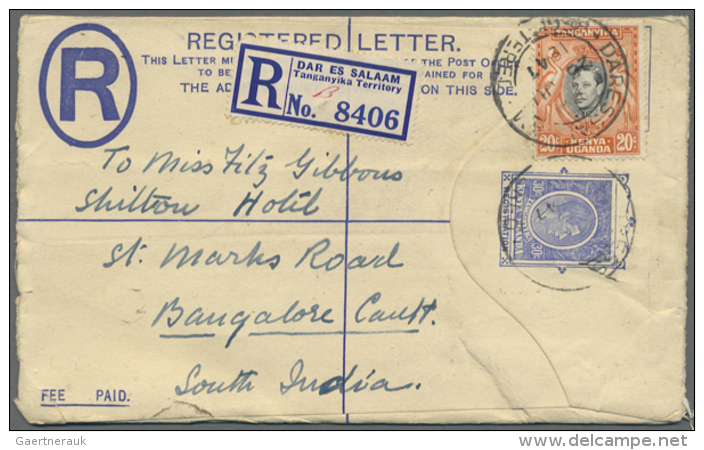 REGISTERED LETTER.
THIS LETTER MU
OF THE POST O
TO BE
AINED FOR
THE AD
ON THIS SIDE.
R
R
DAR ES SALAAM
Tanganyika Territory
B
No. 8406
TANGANYIKA
20c
20c
KENYA
UGANDA
To Miss Fitz Gibbons
Shilton Hotel
St. Marks Road
Bangalore Cantt.
South India.
FEE PAID.
Gaertnerauk
© delcampe.net